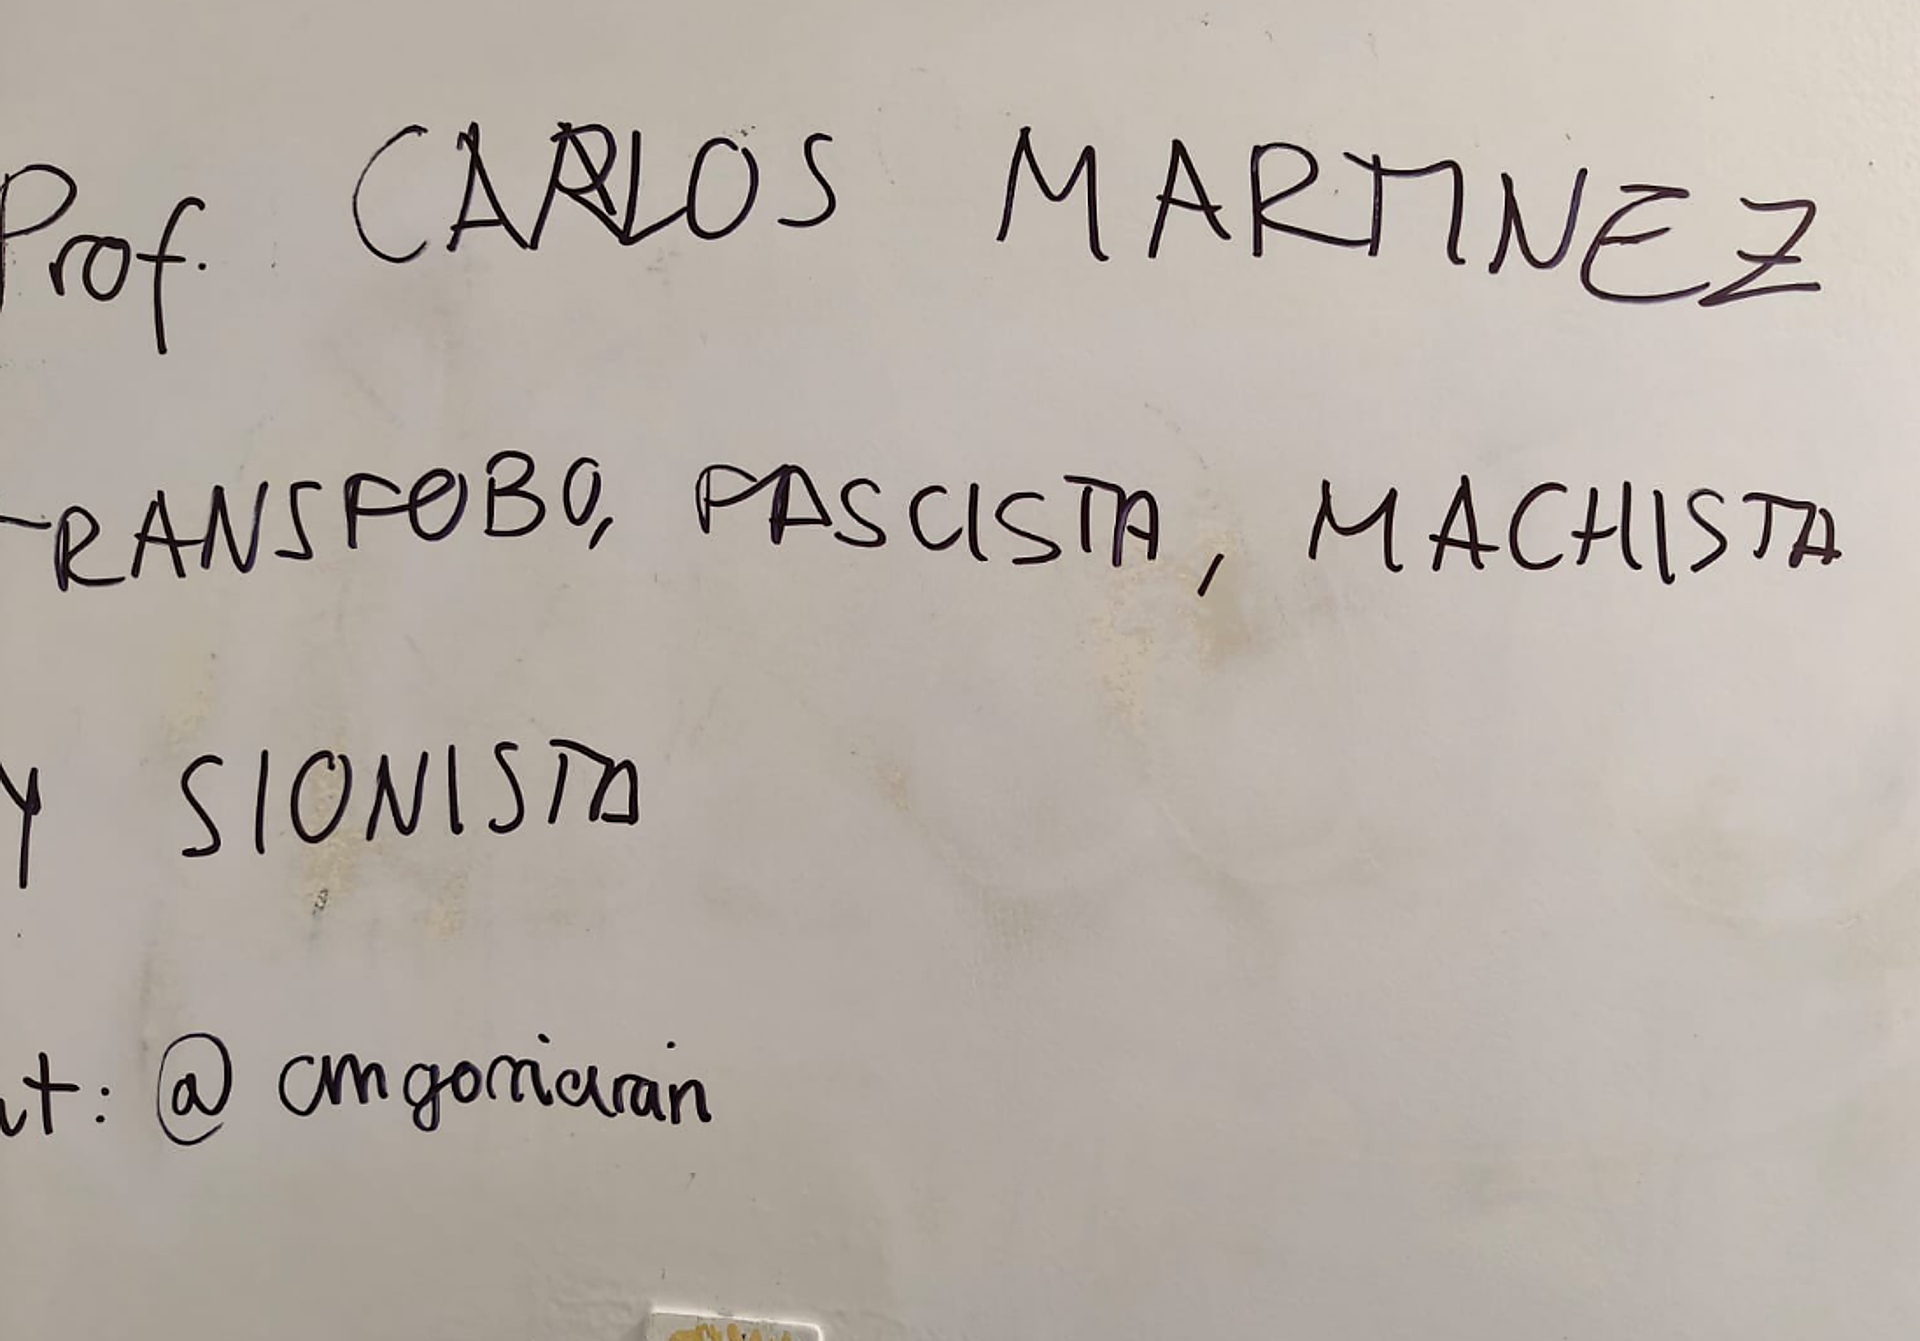 Prof. CARLOS MARTINEZ
TRANSFOBO, FASCISTA, MACHISTA
Y SIONISTA
@